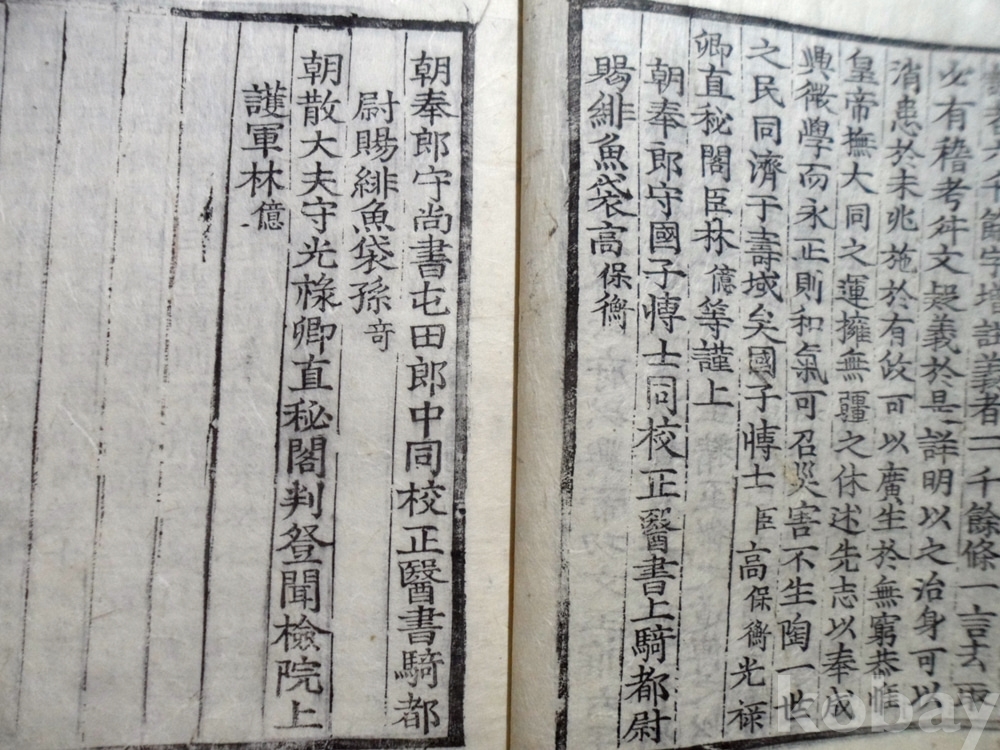 者六千餘字增註義者二千餘條一言去取
必有稽考舛文疑義於是詳明以之治身可以
消患於未兆施於有政可以廣生於無窮恭惟
皇帝撫大同之運擁無疆之休述先志以奉成
興微學而永正則和氣可召災害不生陶一世
之民同濟于壽域矣國子愽士臣高保衡光祿
卿直秘閣臣林億等謹上
朝奉郎守國子愽士同校正醫書上騎都尉
賜緋魚袋高保衡
朝奉郎守尚書屯田郎中同校正醫書騎都
尉賜緋魚袋孫奇
朝散大夫守光祿卿直秘閣判登聞檢院上
護軍林億
kobay